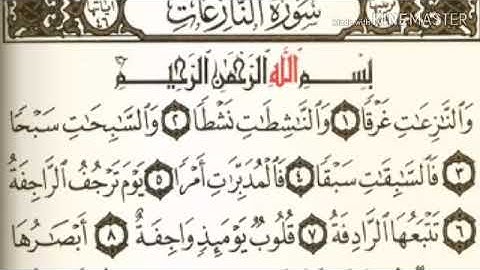 سورة النازعات
آياتها ٤٦
Made with KINEMASTER
بِسْمِ ٱللَّهِ ٱلرَّحْمَٰنِ ٱلرَّحِيمِ
وَٱلنَّازِعَاتِ غَرْقًا ١ وَٱلنَّاشِطَاتِ نَشْطًا ٢ وَٱلسَّابِحَاتِ سَبْحًا
٣ فَٱلسَّابِقَاتِ سَبْقًا ٤ فَٱلْمُدَبِّرَاتِ أَمْرًا ٥ يَوْمَ تَرْجُفُ ٱلرَّاجِفَةُ
٦ تَتْبَعُهَا ٱلرَّادِفَةُ ٧ قُلُوبٌ يَوْمَئِذٍ وَاجِفَةٌ ٨ أَبْصَارُهَا